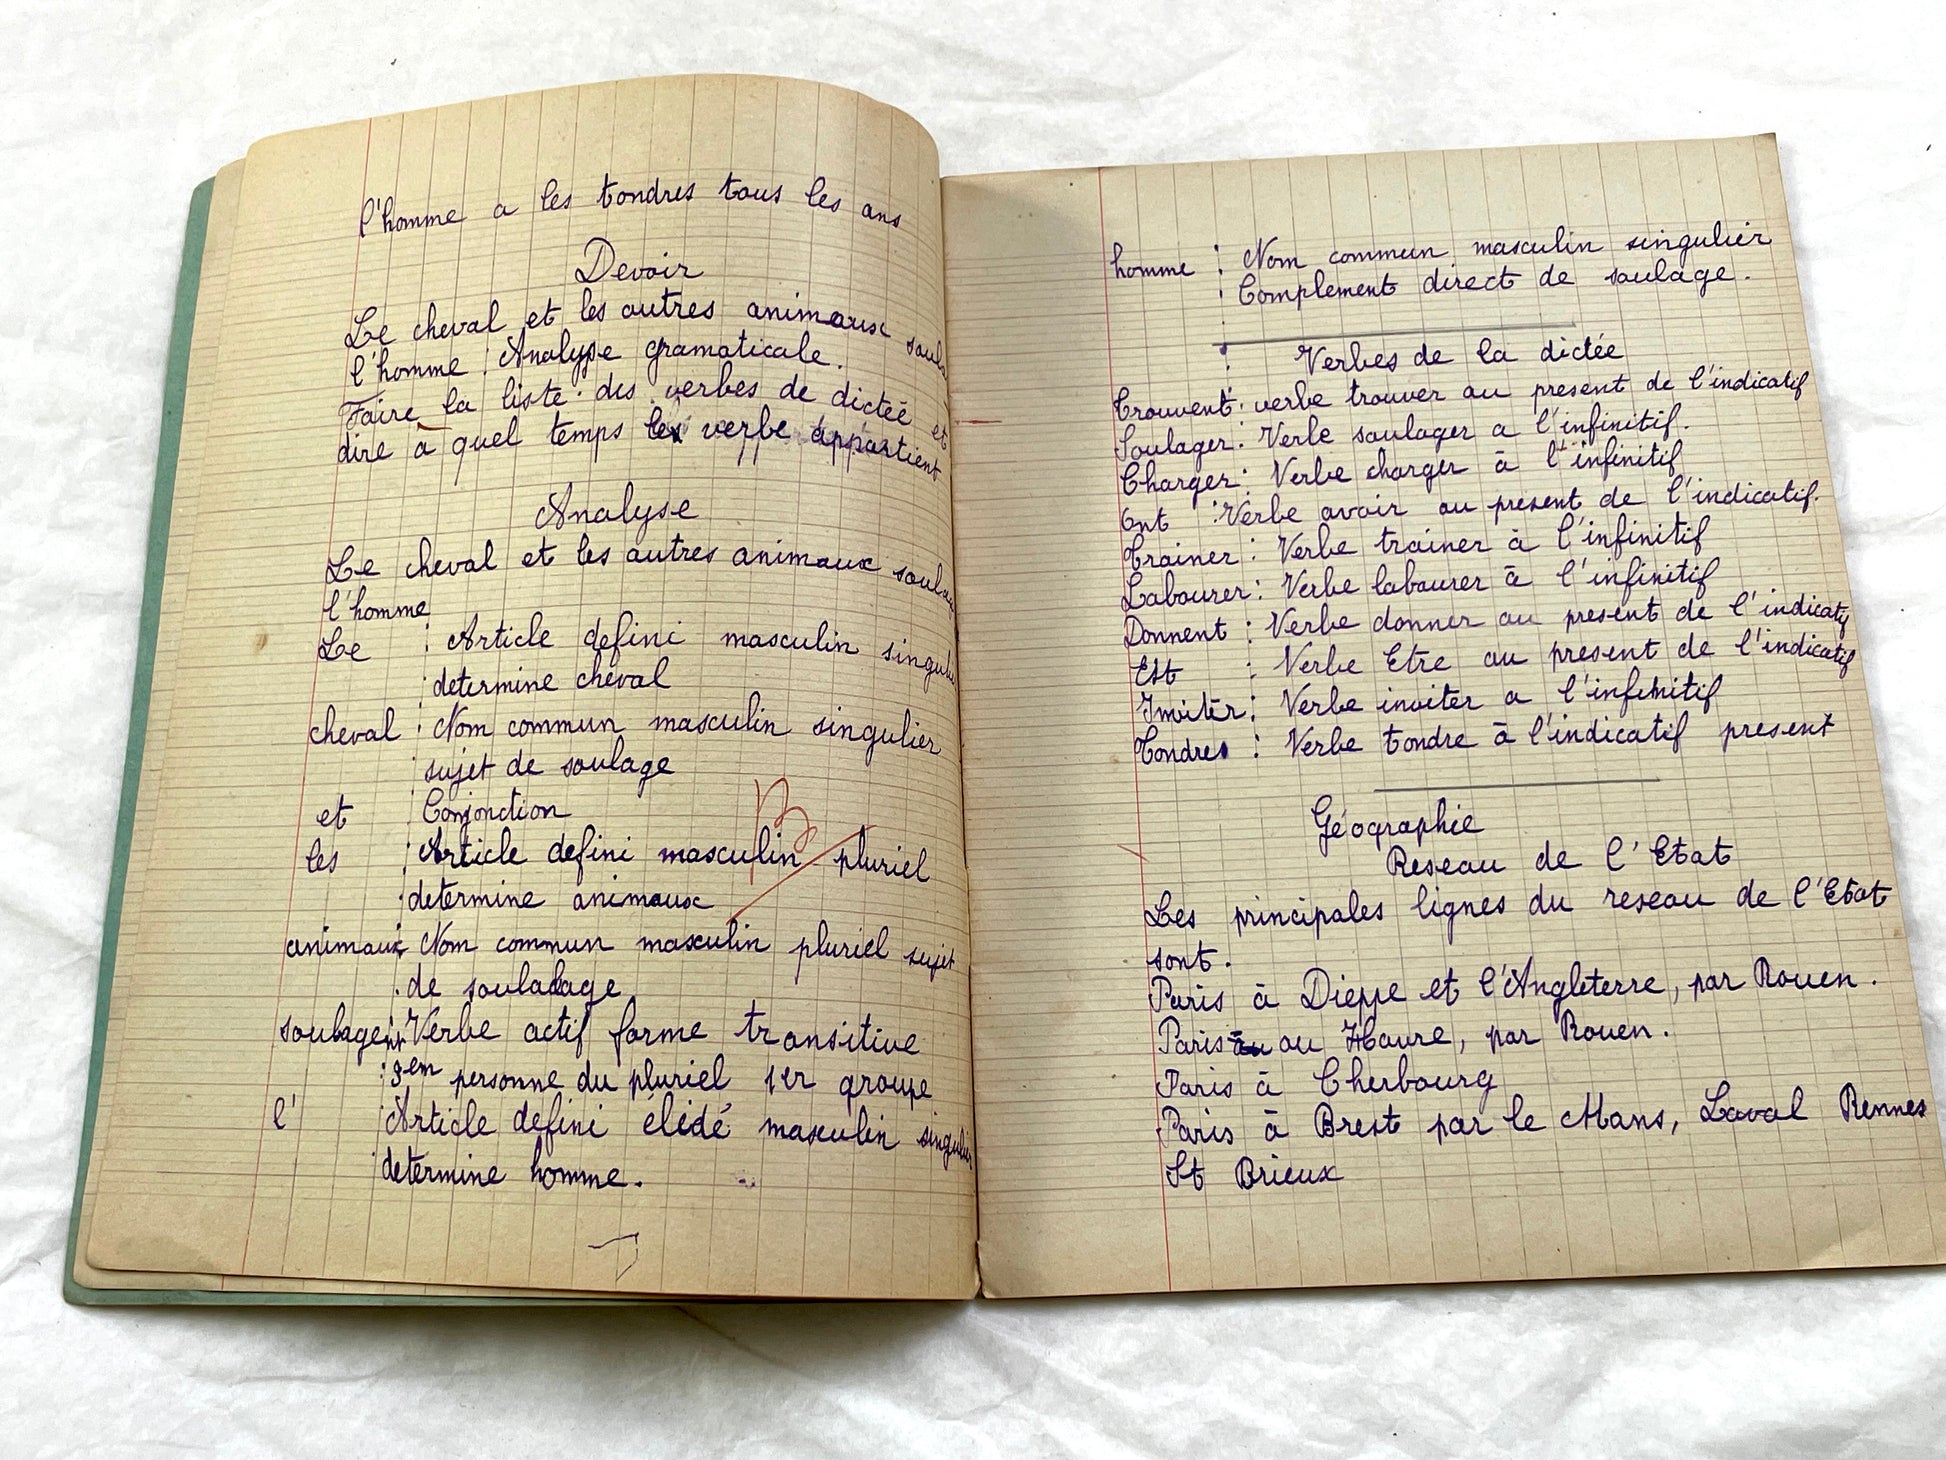 l'homme a les tondres tous les ans
Devoir
Le cheval et les autres animaux
l'homme : Analyse gramaticale.
Faire la liste des verbes de dictée et
dire à quel temps les verbe appartient
Analyse
Le cheval et les autres animaux
l'homme
Le : Article defini masculin
determine cheval
cheval : Nom commun masculin singulier
sujet de soulage
et Conjonction
les : Article defini masculin pluriel
B
: determine animaux
animaux : Nom commun masculin pluriel sujet
. de souladage
soulagent : Verbe actif forme transitive
: 3em personne du pluriel 1er groupe
l' : Article defini élidé masculin
: determine homme.
homme : Nom commun masculin singulier
: Complement direct de soulage.
Verbes de la dictée
Trouvent : verbe trouver au present de l'indicatif
Soulager : Verbe soulager a l'infinitif.
Charger : Verbe charger à l'infinitif
Ont : Verbe avoir au present de l'indicatif.
Trainer : Verbe trainer à l'infinitif
Labourer : Verbe labourer à l'infinitif
Donnent : Verbe donner au present de l'indicatif
Est : Verbe Etre au present de l'indicatif
Inviter : Verbe inviter a l'infinitif
Tondres : Verbe tondre à l'indicatif present
Géographie
Reseau de l'Etat
Les principales lignes du reseau de l'Etat
sont.
Paris à Dieppe et l'Angleterre, par Rouen.
Paris au Havre, par Rouen.
Paris à Cherbourg
Paris à Brest par le Mans, Laval Rennes
St Brieux